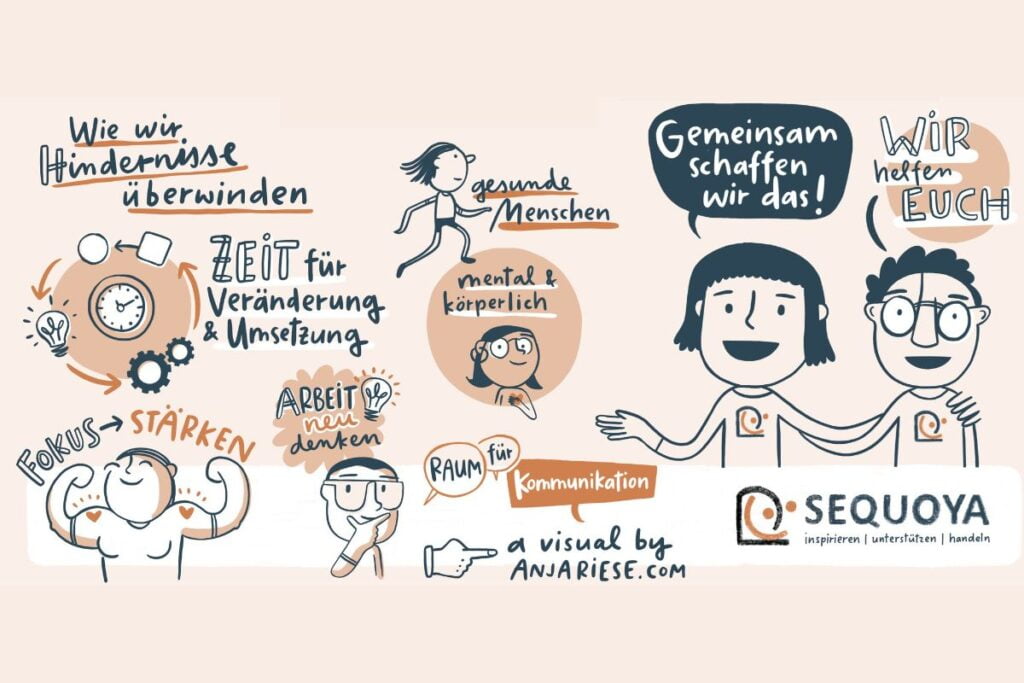 Wie wir
Hindernisse
überwinden
ZEIT für
Veränderung
& Umsetzung
FOKUS → STÄRKEN
ARBEIT
neu
denken
gesunde
Menschen
mental &
körperlich
RAUM für
Kommunikation
a visual by
ANJARIESE.COM
Gemeinsam
schaffen
wir das!
WIR
helfen
EUCH
SEQUOYA
inspirieren | unterstützen | handeln